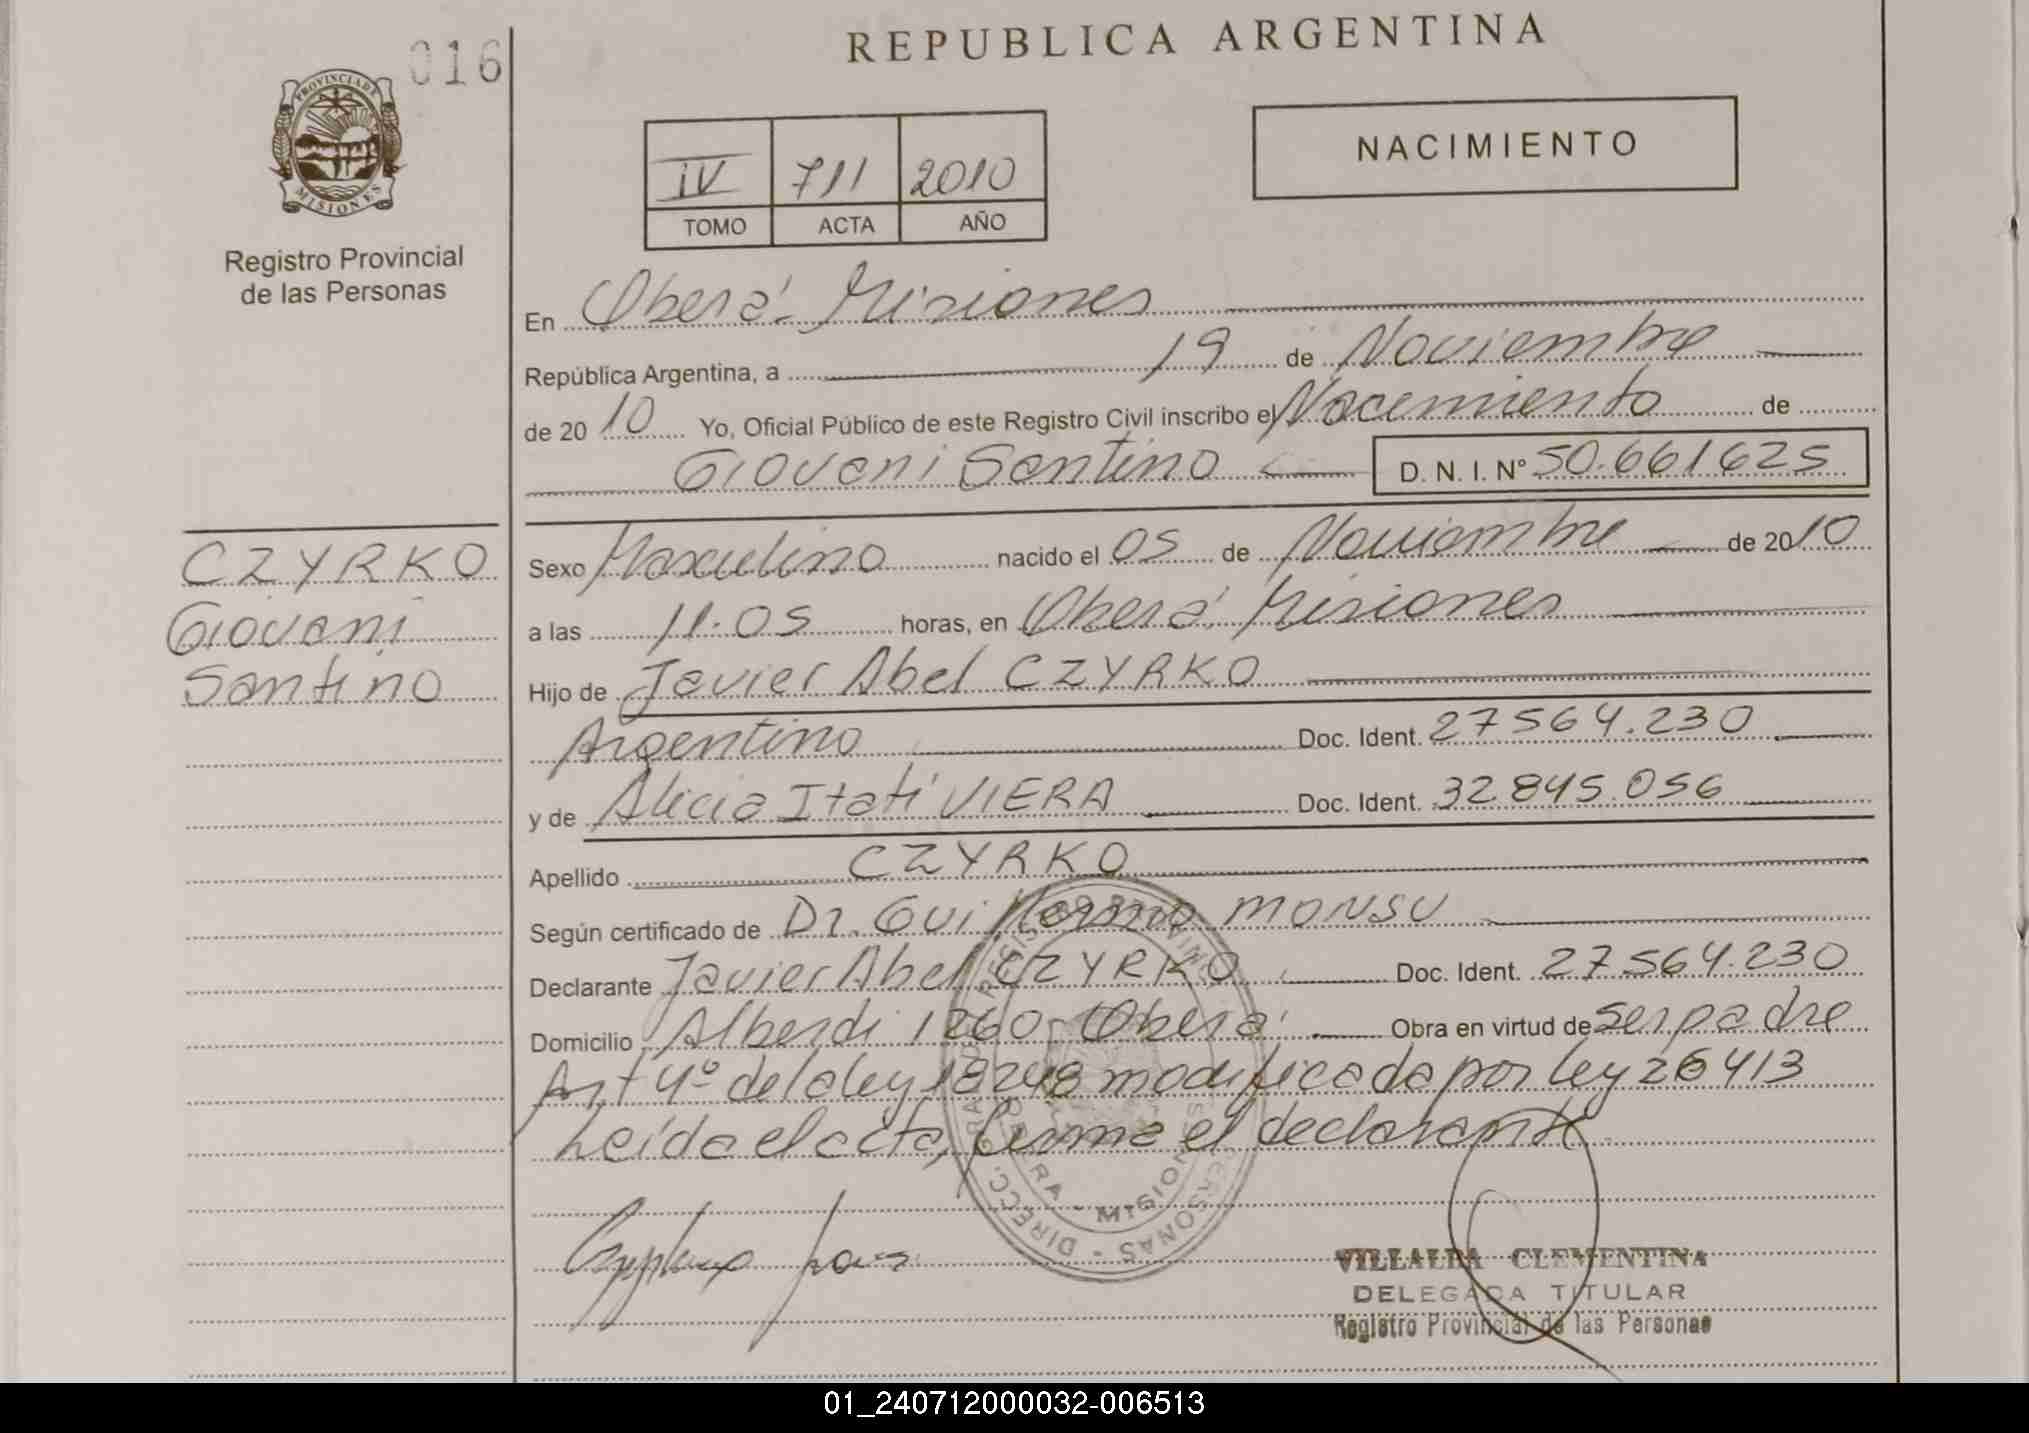 016
REPUBLICA ARGENTINA
PROVINCIA DE MISIONES
Registro Provincial
de las Personas
IV 711 2010
TOMO ACTA AÑO
NACIMIENTO
En Oberá - Misiones
República Argentina, a 19 de Noviembre
de 2010 Yo, Oficial Público de este Registro Civil inscribo el Nacemiento de
Giovani Santino D. N. I. N° 50.661625
CZYRKO
Giovani
Santino
Sexo Masculino nacido el 05 de Noviembre de 2010
a las 11.05 horas, en Oberá, Misiones
Hijo de Javier Abel CZYRKO
Argentino Doc. Ident. 27564.230
y de Alicia Itatí VIERA Doc. Ident. 32845.056
Apellido CZYRKO
Según certificado de Dr. Guillermo MONSU
Declarante Javier Abel CZYRKO Doc. Ident. 27564.230
Domicilio Alberdi 1260 - Oberá Obra en virtud de ser padre
Art 4º de la ley 18248 modificada por ley 26413
Leída el acta, firma el declarante
VILLALBA CLEMENTINA
DELEGADA TITULAR
Registro Provincial de las Personas
01_240712000032-006513